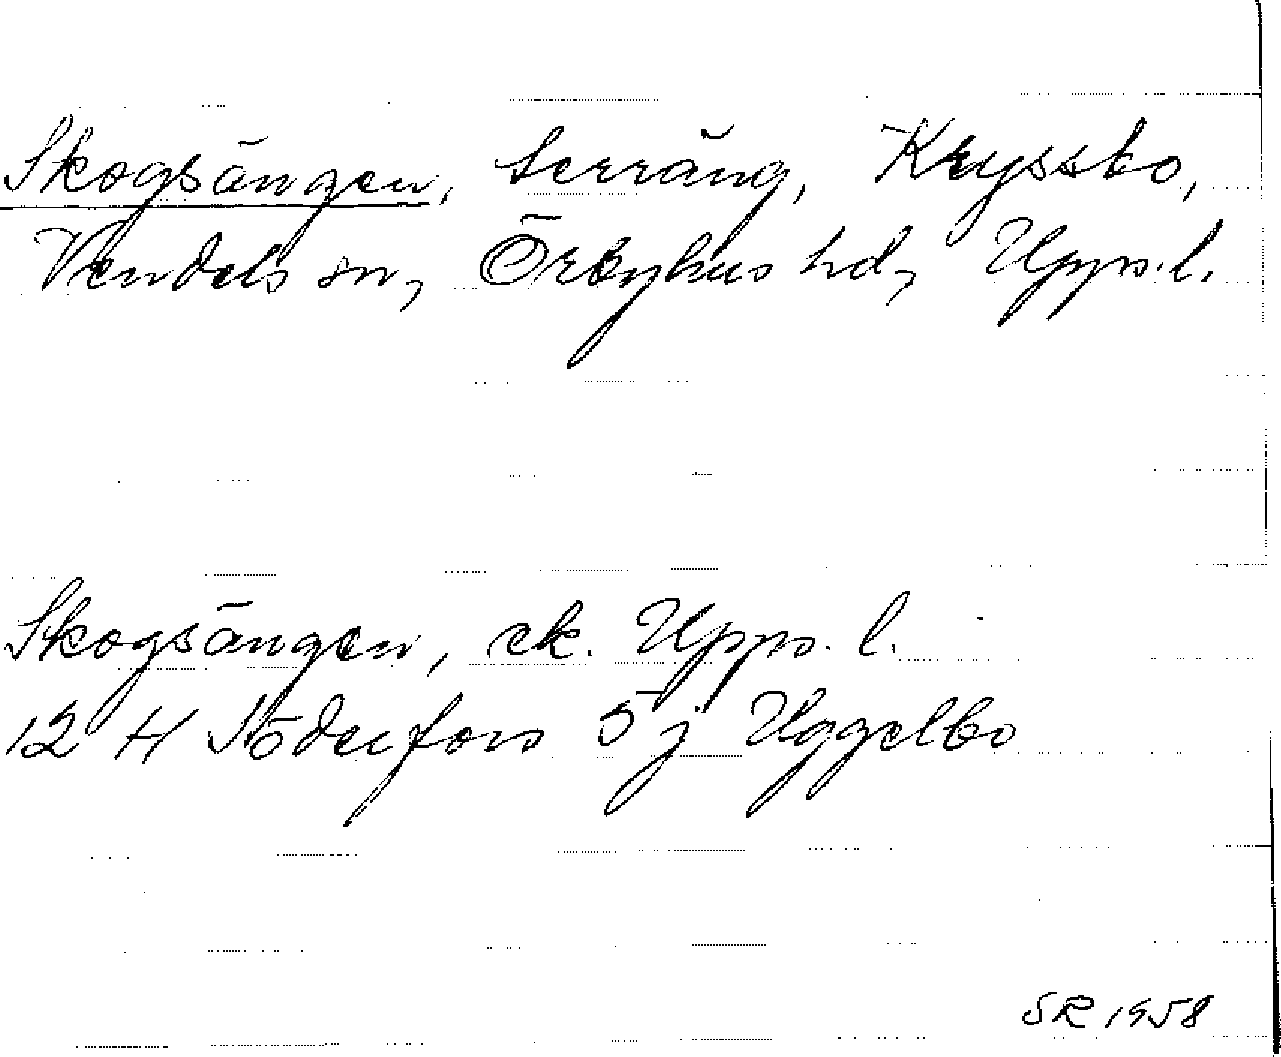 Skogsängen, terräng, Kryssbo,
Vendels sn, Örbyhus hd, Upps. l.
Skogsängen, ek. Upps. l.
12 H Söderfors 5 j Uggelbo
SR 1958